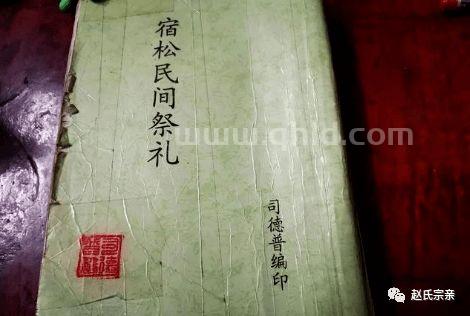 宿松民间祭礼
司德普编印
www.qhld.com
赵氏宗亲